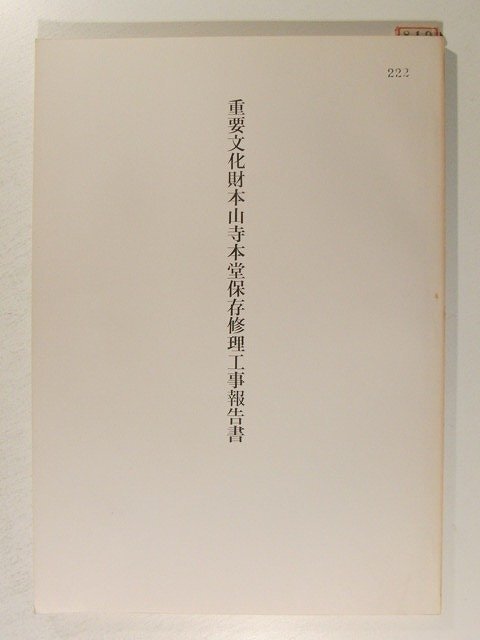 222
重要文化財本山寺本堂保存修理工事報告書